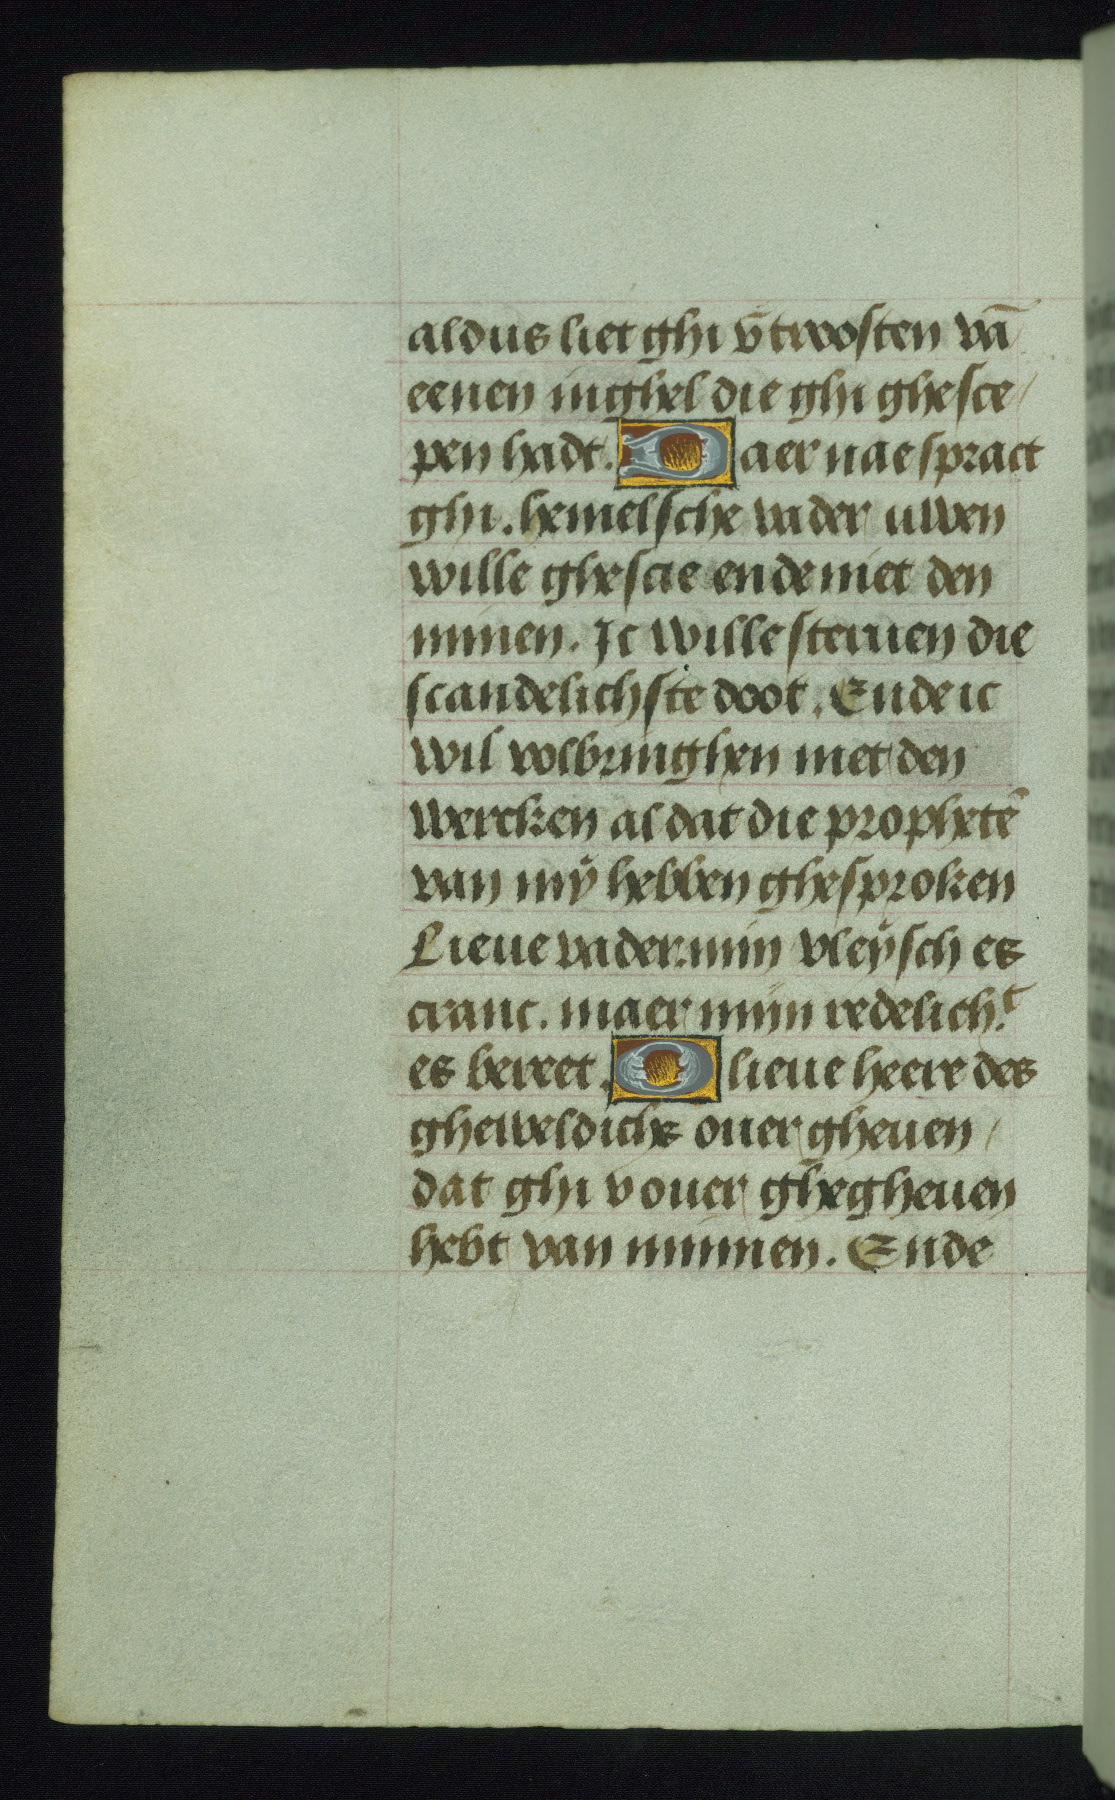 aldus liet ghi v̄troosten vā
eenen inghel die ghi ghesce/
pen hadt. Daer nae spract
ghi. hemelsche vader uwen
wille ghescie ende niet den
minen. Ic wille steruen die
scandelichste doot. Ende ic
wil volbringhen met den
wercken al dat die prophetē
van mÿ hebben ghesproken
Lieue vader. mijn vleÿsch es
cranc. maer mijn redelich.t
es bereet. O lieue heere des
gheweldichs ouer gheuen/
dat ghi v ouer ghegheuen
hebt van minnen. Ende